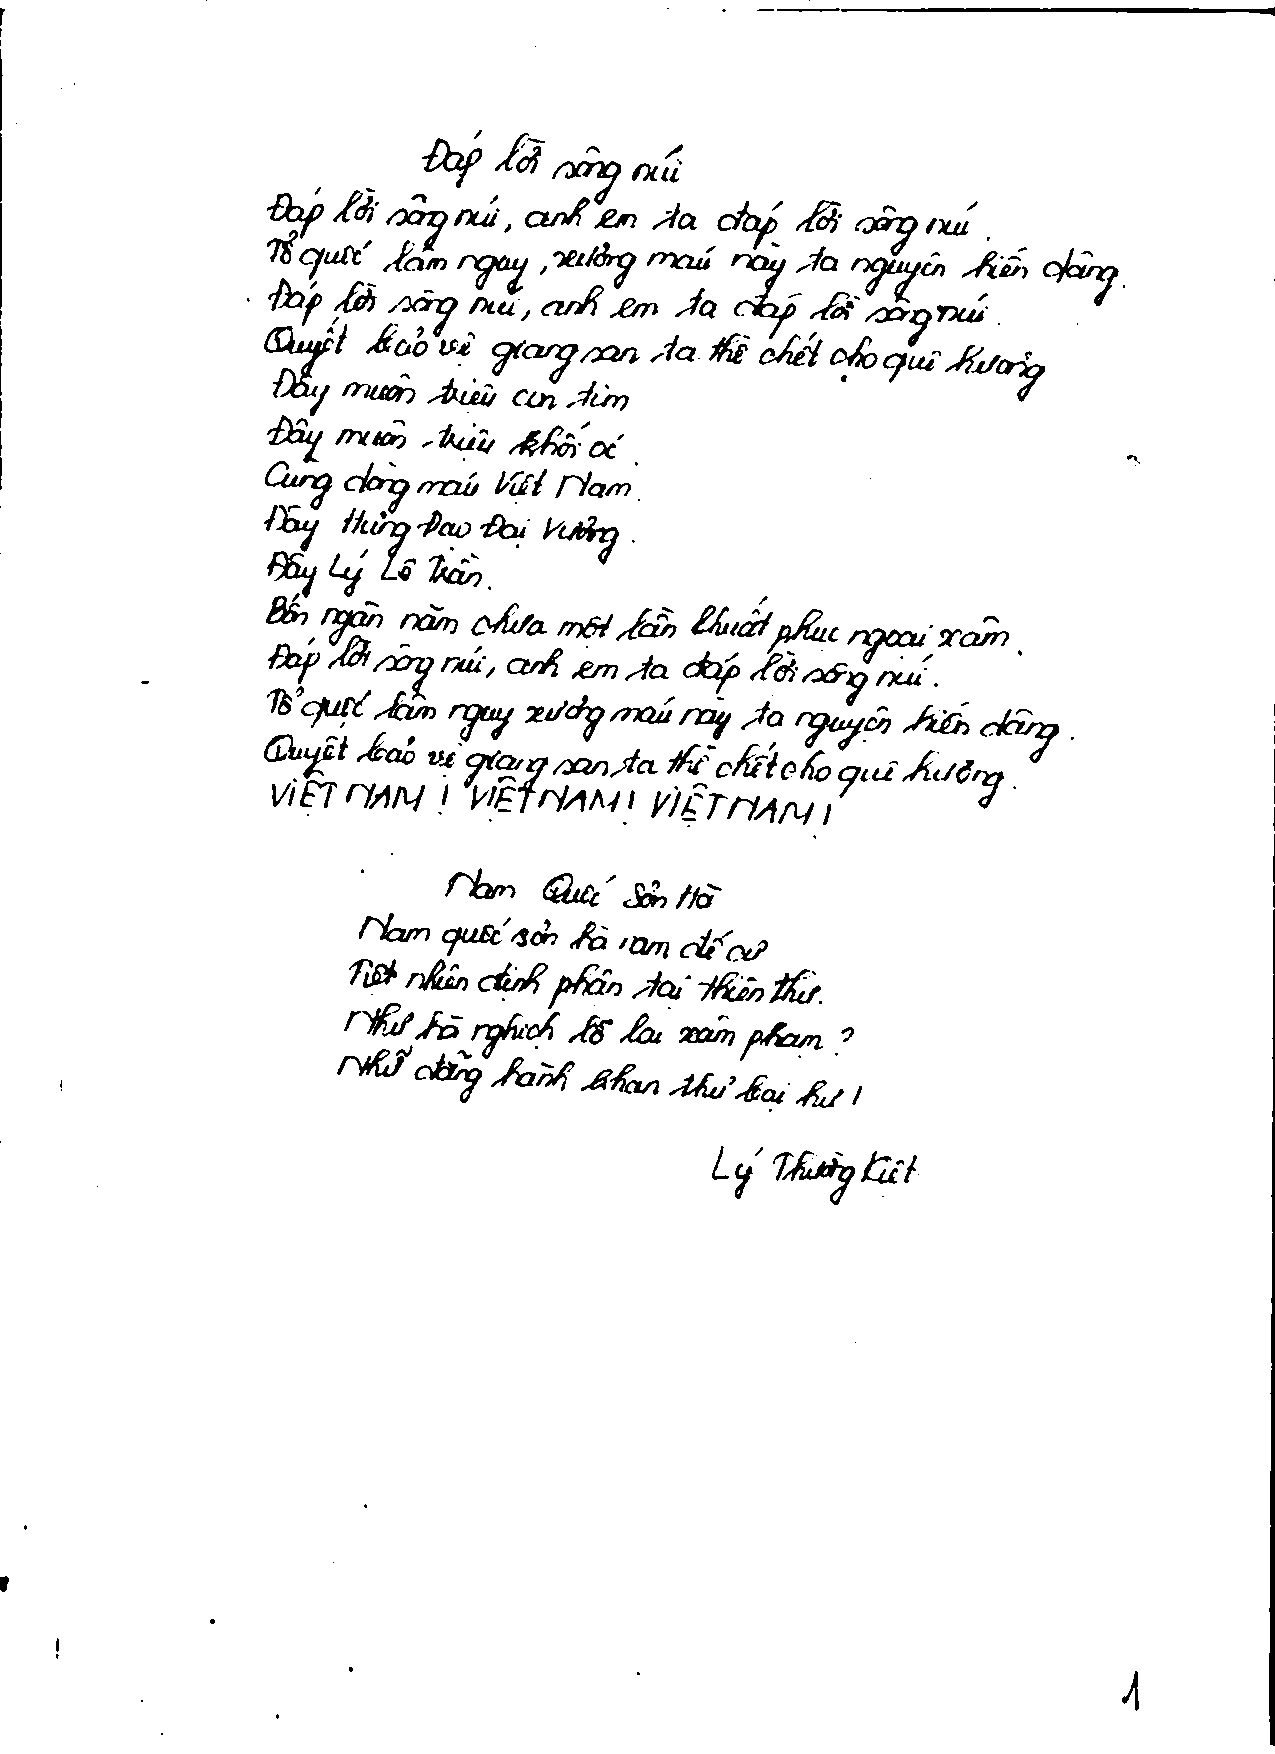 Đáp lời sông núi
Đáp lời sông núi, anh em ta đáp lời sông núi.
Tổ quốc lâm nguy, xương máu này ta nguyện hiến dâng.
Đáp lời sông núi, anh em ta đáp lời sông núi.
Quyết bảo vệ giang san ta thề chết cho quê hương
Đây muôn triệu con tim
Đây muôn triệu khối óc.
Cùng dòng máu Việt Nam.
Đây Hưng Đạo Đại Vương.
Đây Lý Lê Trần.
Bốn ngàn năm chưa một lần khuất phục ngoại xâm.
Đáp lời sông núi, anh em ta đáp lời sông núi.
Tổ quốc lâm nguy xương máu này ta nguyện hiến dâng.
Quyết bảo vệ giang san ta thề chết cho quê hương.
VIỆT NAM! VIỆT NAM! VIỆT NAM!
Nam Quốc Sơn Hà
Nam quốc sơn hà nam đế cư
Tiệt nhiên định phận tại thiên thư.
Như hà nghịch lỗ lai xâm phạm?
Nhữ đẳng hành khan thủ bại hư!
Lý Thường Kiệt
1